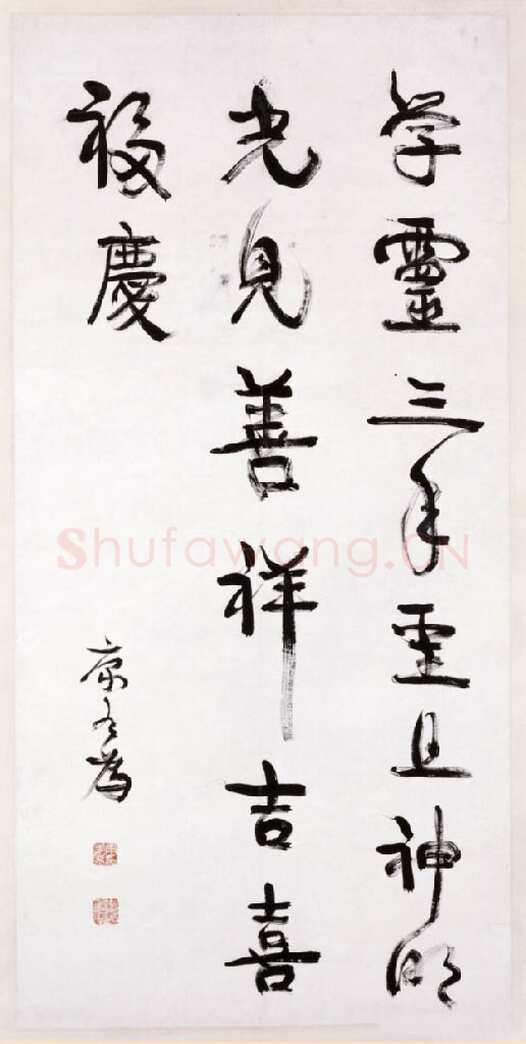 学靈三年聖且神明
光見善祥吉喜
福慶
康有為
Shufawang.CN